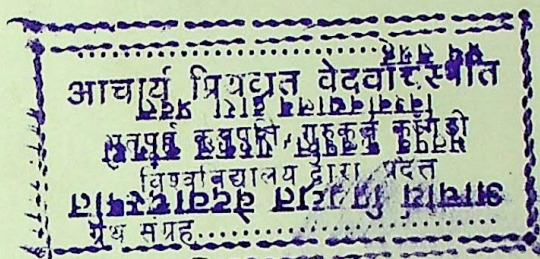 आचार्य प्रियव्रत वेदवाचस्पति
भूतपूर्व कुलपति, गुरुकुल काँगड़ी
विश्वविद्यालय द्वारा प्रदत्त
ग्रंथ संग्रह..........................